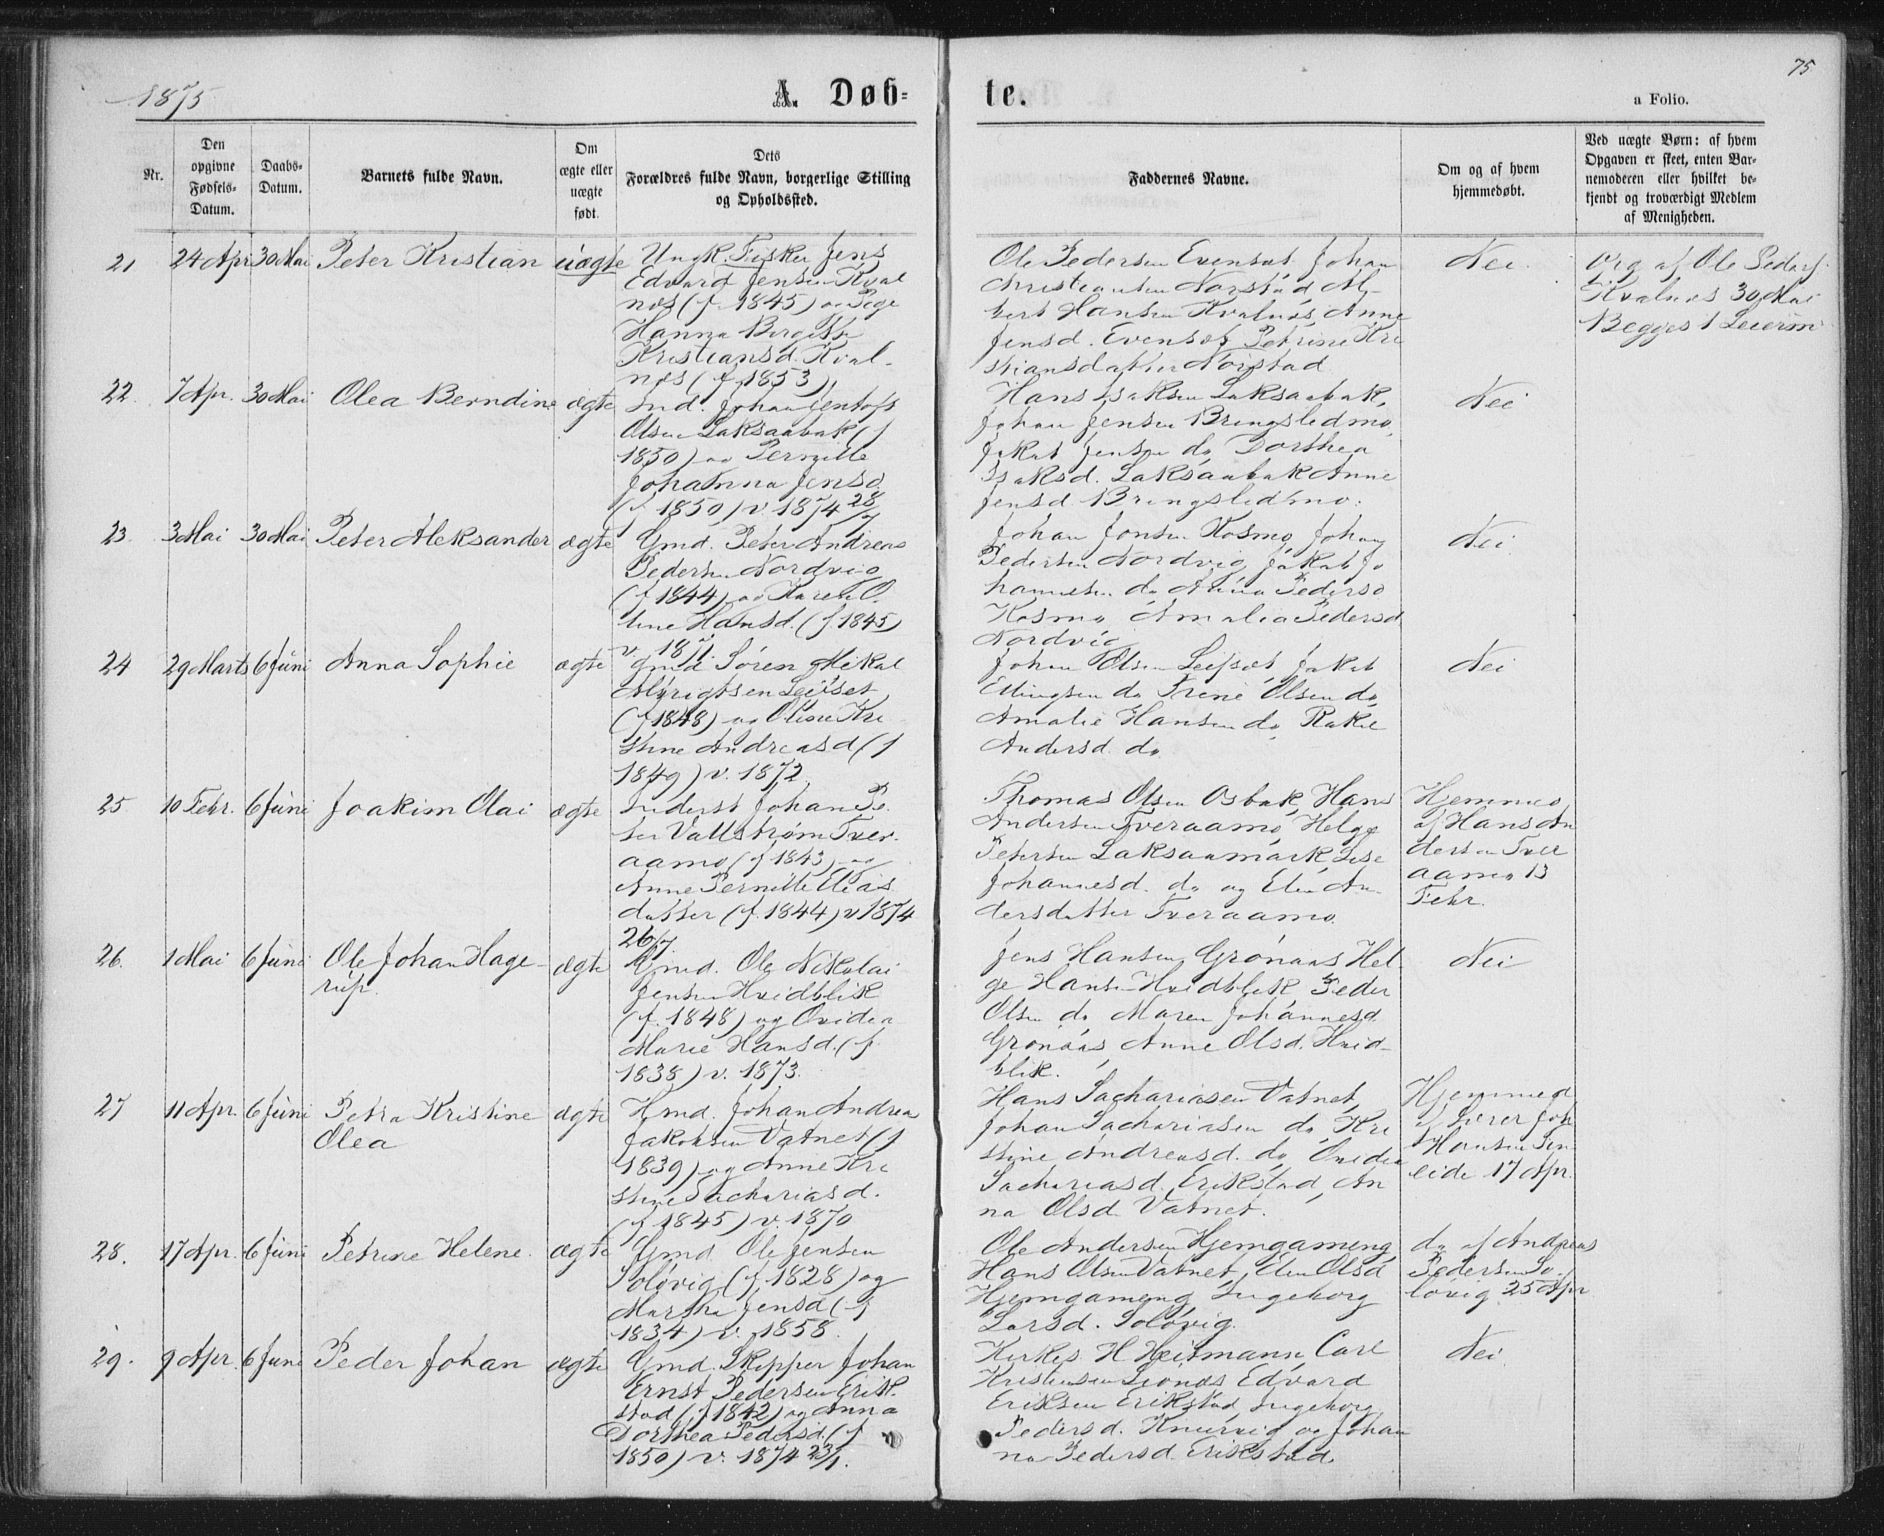 1875
A. Døb=
te.
75
a Folio.
Nr.
Den
opgivne
Fødsels-
Datum.
Daabs-
Datum.
Barnets fulde Navn.
Om
ægte eller
uægte
født.
Dets
Forældres fulde Navn, borgerlige Stilling
og Opholdssted.
Faddernes Navne.
Om og af hvem
hjemmedøbt.
Ved uægte Børn: af hvem
Opgaven er skeet, enten Bar-
nemoderen eller hvilket be-
kjendt og troværdigt Medlem
af Menigheden.
21 24 Apr 30 Mai Peter Kristian uægte
Ungk. Fisker Jens
Edvard Jensen Kval
nes (f. 1845) og Pige
Hanna Birgitte
Kristiansd. Kval-
nes (f 1853)
Ole Pedersen Evenset Johan
Christiansen Norstad Al-
bert Hansen Kvalnes Anne
Jensd. Evenset Petrine Kri
stiansdatter Norstad
Nei
af Ole Peders.
Kvalnes 30 Mai
Begges 1 Leierm
22. 7 Apr. 30 Mai Olea Berndine ægte
Ind. Johan Jentoft
Olsen Laksaabak (f
1850) og Pernille
Johanna Jensd.
(f. 1850) v. 1874 28/7
Hans Isaksen Laksaabak,
Johan Jensen Bringsledmo,
Jakob Jensen do, Dorthea
Isaksd. Laksaabak Anne
Jensd Bringsledmo.
Nei
23. 3 Mai 30 Mai Peter Aleksander ægte
Gmd. Peter Andreas
Pedersen Nordvig
(f 1844) og Karen O.
line Hansd. (f 1845)
v. 1871.
Johan Jonsen Kosmo, Johan
Pedersen Nordvig, Jakob Jo
hannesen do Anna Pedersd
Kosmo, Amalia Pedersd
Nordvig
Nei
24 29 Marts 6 Juni Anna Sophie ægte
Gmd Søren Mikal
Albrigtsen Leifset
(f 1848) og Oline Kri
stine Andreasd (f
1849) v. 1872
Johan Olsen Leifset, Jakob
Ellingsen do Trine Olsen do,
Amalie Hansen do, Rakel
Andersd. do
Nei
25 10 Febr. 6 Juni Joakim Olai ægte
Inderst Johan Pe.
ter Vallstrøm Tver.
aamo (f 1843) og
Anne Pernille Elias
datter (f. 1844) v 1874
26/7.
Thomas Olsen Osbak, Hans
Andersen Tveraamo, Helge
Petersen Laksaamark, Lise
Johannesd. do og Elen An-
dersdatter Tveraamo
Hjemmed
af Hans An
dersen Tver
aamo 13
Febr.
26. 1 Mai 6 Juni Ole Johan Hage-
rup. ægte
Gmd. Ole Nikolai
Jensen Hvidblik
(f. 1848) og Ovidea
Marie Hansd. (f
1838) v. 1873.
Jens Hansen Grønaas Hel-
ge Hansen Hvidblik Peder
Olsen do Maren Johannesd
Grønaas, Anne Olsd. Hvid-
blik.
Nei
27 11 Apr. 6 Juni Petra Kristine
Olea ægte
Hmd. Johan Andrea
Jakobsen Vatnet (f
1839) og Anne Kri
stine Sachariasd.
(f 1845) v. 1870
Hans Sachariasen Vatnet,
Johan Sachariasen do, Kri
stine Andreasd. do, Ovidia
Sachariasd. Erikstad, An
na Olsd. Vatnet.
Hjemmed
af Lærer Joh
Hansen
eide 17 Apr.
28. 17 Apr. 6 Juni Petrine Helene. ægte
Gmd Ole Jensen
Soløvig (f. 1828) og
Martha Jensd (f
1834) v. 1858.
Ole Andersen Hjemgameng,
Hans Olsen Vatnet, Elen Olsd
Hjemgameng Ingeborg
Larsd. Soløvig.
do af Andreas
Pedersen So
løvig 25 Apr
29. 9 Apr. 6 Juni Peder Johan ægte
Gmd. Skipper Johan
Ernst Pedersen Erik-
stad (f 1842) og Anna
Dorthea Pedersd. (f
1850) v. 1874 23/1.
Kirkes. H Heitmann Carl
Kristensen Leonæs Edvard
Eriksen Erikstad, Ingeborg
Pedersd. Knurvig og Johan
na Pedersd. Erikstad.
Nei